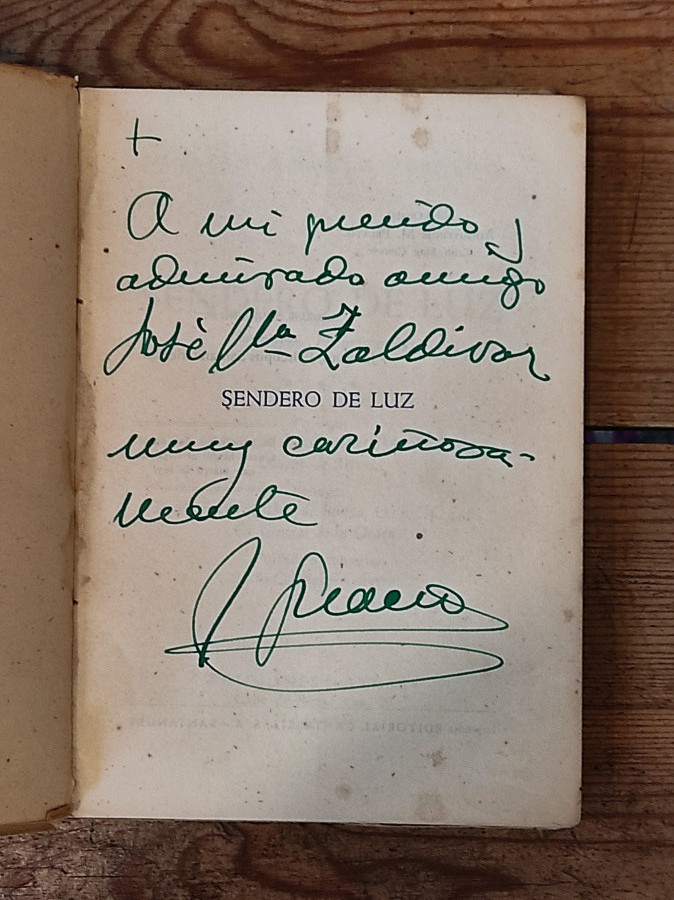 +
A mi querido y
admirado amigo
José Mª Zaldivar
SENDERO DE LUZ
muy cariñosa-
mente